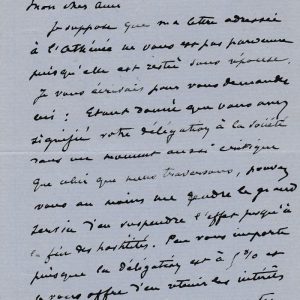 Mon cher ami
Je suppose que ma lettre adressée
à l'Athénée ne vous est pas parvenue
puisqu'elle est resté sans réponse.
Je vous écrivais pour vous demander
ceci : Etant donné que vous avez
signifié votre délégation à la Société
dans un moment aussi critique
que celui que nous traversons, pouvez
vous au moins me rendre le grand
service d'en suspendre l'effet jusqu'à
la fin des hostilités. Peu vous importe
puisque la délégation est à 5% et
je vous offre d'en retenir les intérêts